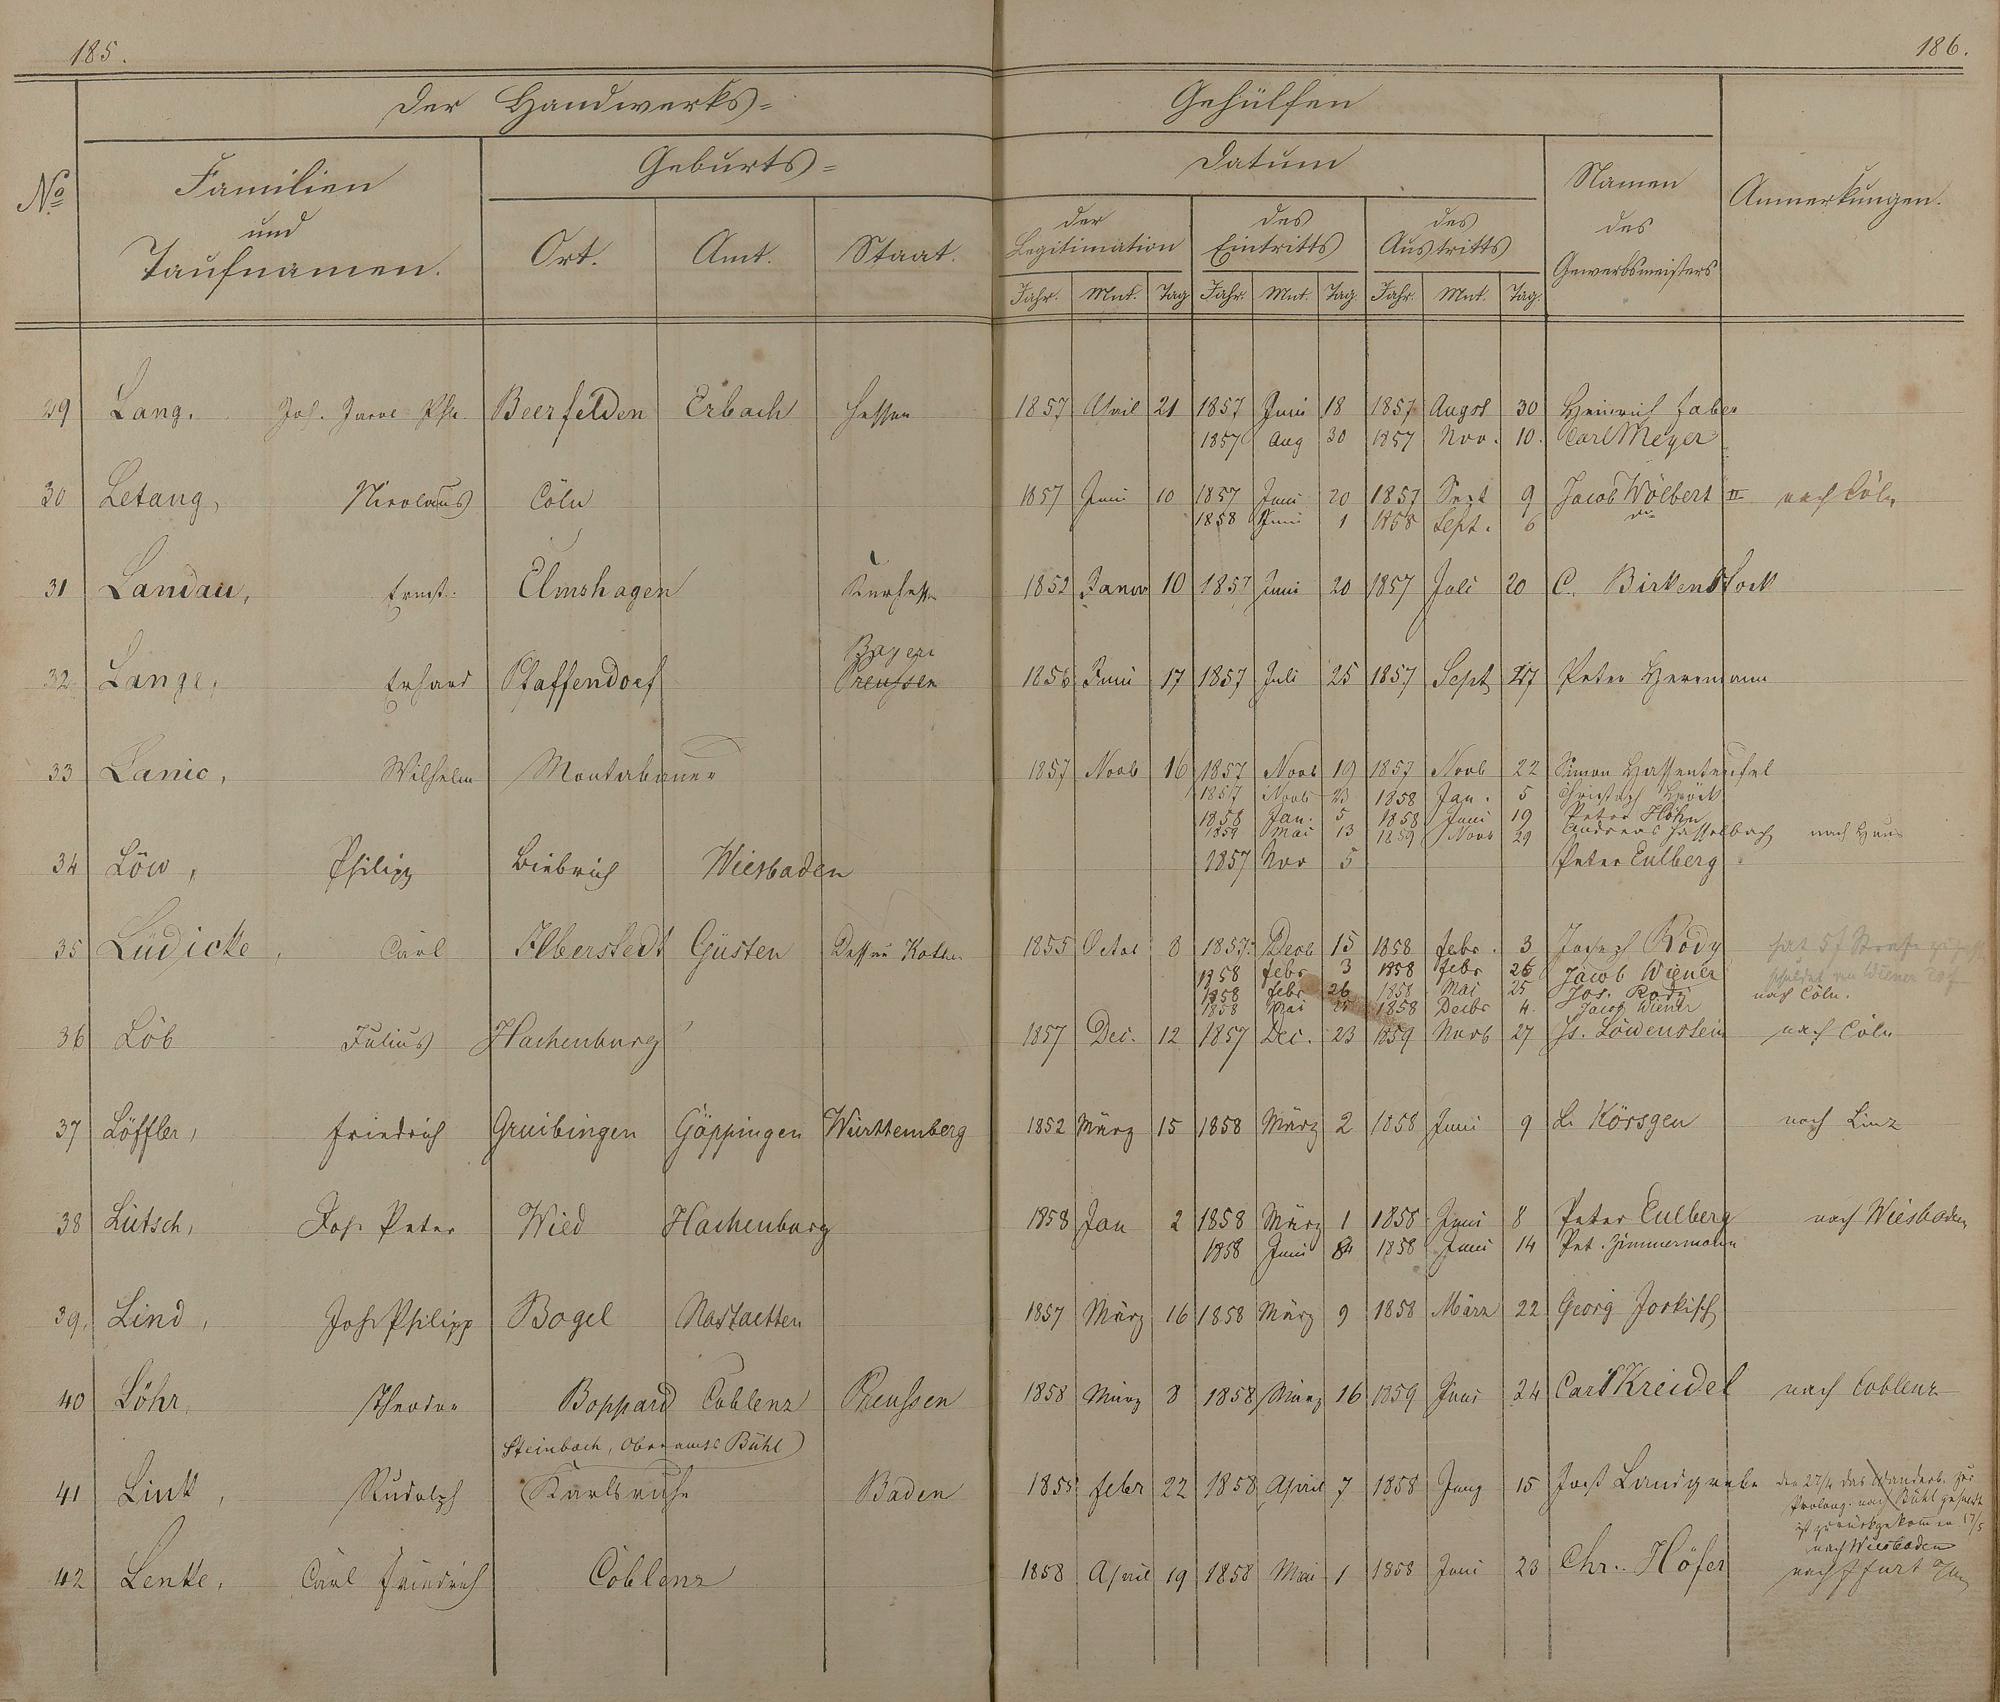 185.
186.
Der Handwerks=
Gehülfen
No
Familien
und
Taufnamen.
Geburts=
Ort. Amt. Staat.
Datum
der
Legitimation
des
Eintritts
des
Austritts
Jahr. Mnt. Tag Jahr. Mnt. Tag Jahr. Mnt. Tag.
Namen
des
Gewerbsmeisters
Anmerkungen.
29 Lang, Joh. Beerfelden Erbach Hessen 1857 April 21 1857 Juni 18 1857 Augst 30 Heinrich Faber
1857 Aug 30 1857 Nov. 10. Carl Meyer
30 Letang, Nicolaus Cöln 1857 Juni 10 1857 Juni 20 1857 Sept 9 Jacob Wölbert II nach Cöln
1858 Juni 1 1858 Sept. 6
31 Landau, Ernst. Elmshagen Kurhess 1852 Januar 10 1857 Juni 20 1857 Juli 20 C. Birkenstock
32 Lange, Erhard Pfaffendorf Bayern Preussen 1856 Juni 17 1857 Juli 25 1857 Sept 17 Peter Herrmann
33 Lanio, Wilhelm Montabauer 1857 Novb 16 1857 Novb 19 1857 Novb 22 Simon Hassenteufel
1857 Novb 23 1858 Jan. 5 Christoph
1858 Jan. 5 1858 Juni 19 Peter Höhn
1859 Mai 13 1859 Novb 29 Andreas Hasselbach nach Haus
34 Löw, Philipp Biebrich Wiesbaden 1857 Nov 5 Peter Eulberg
35 Lüdicke, Carl Ilberstedt Güsten Dessau Köthen 1855 Octob 8 1857. Decb 15 1858 Febr. 3 Joseph Rody
1858 Febr 3 1858 Febr 26 Jacob Wiener
1858 Febr 26 1858 Mai 25 Jos. Rody nach Cöln.
1858 Mai 25 1858 Decbr 4. Jacob Wiener
36 Löb Julius Hachenburg 1857 Dec. 12 1857 Dec. 23 1859 Novb 27 Js. Löwenstein nach Cöln
37 Löffler, Friedrich Gruibingen Göppingen Württemberg 1852 März 15 1858 März 2 1858 Juni 9 L. Körsgen nach Linz
38 Lütsch, Joh Peter Wied Hachenburg 1858 Jan 2 1858 März 1 1858 Juni 8 Peter Eulberg nach Wiesbaden
1858 Juni 8 1858 Juni 14 Pet. Zimmermann
39. Lind, Joh Philipp Bogel Nastaetten 1857 März 16 1858 März 9 1858 März 22 Georg Jorkisch
40 Löhr, Theodor Boppard Coblenz Preussen 1858 März 8 1858 März 16 1859 Juni 24 Carl Kreidel nach Coblenz
Steinbach, Oberamts Bühl
41 Link, Rudolph Karlsruhe Baden 1855 Febr 22 1858 April 7 1858 Juny 15 Jost Landgrebe den 27/4 das Wanderb. zur
Prolong. nach Bühl gesandt
ist zurückgekommen 17/5
nach Wiesbaden
42 Lenke, Carl Friedrich Coblenz 1858 April 19 1858 Mai 1 1858 Juni 23 Chr. Höfer nach Ffurt